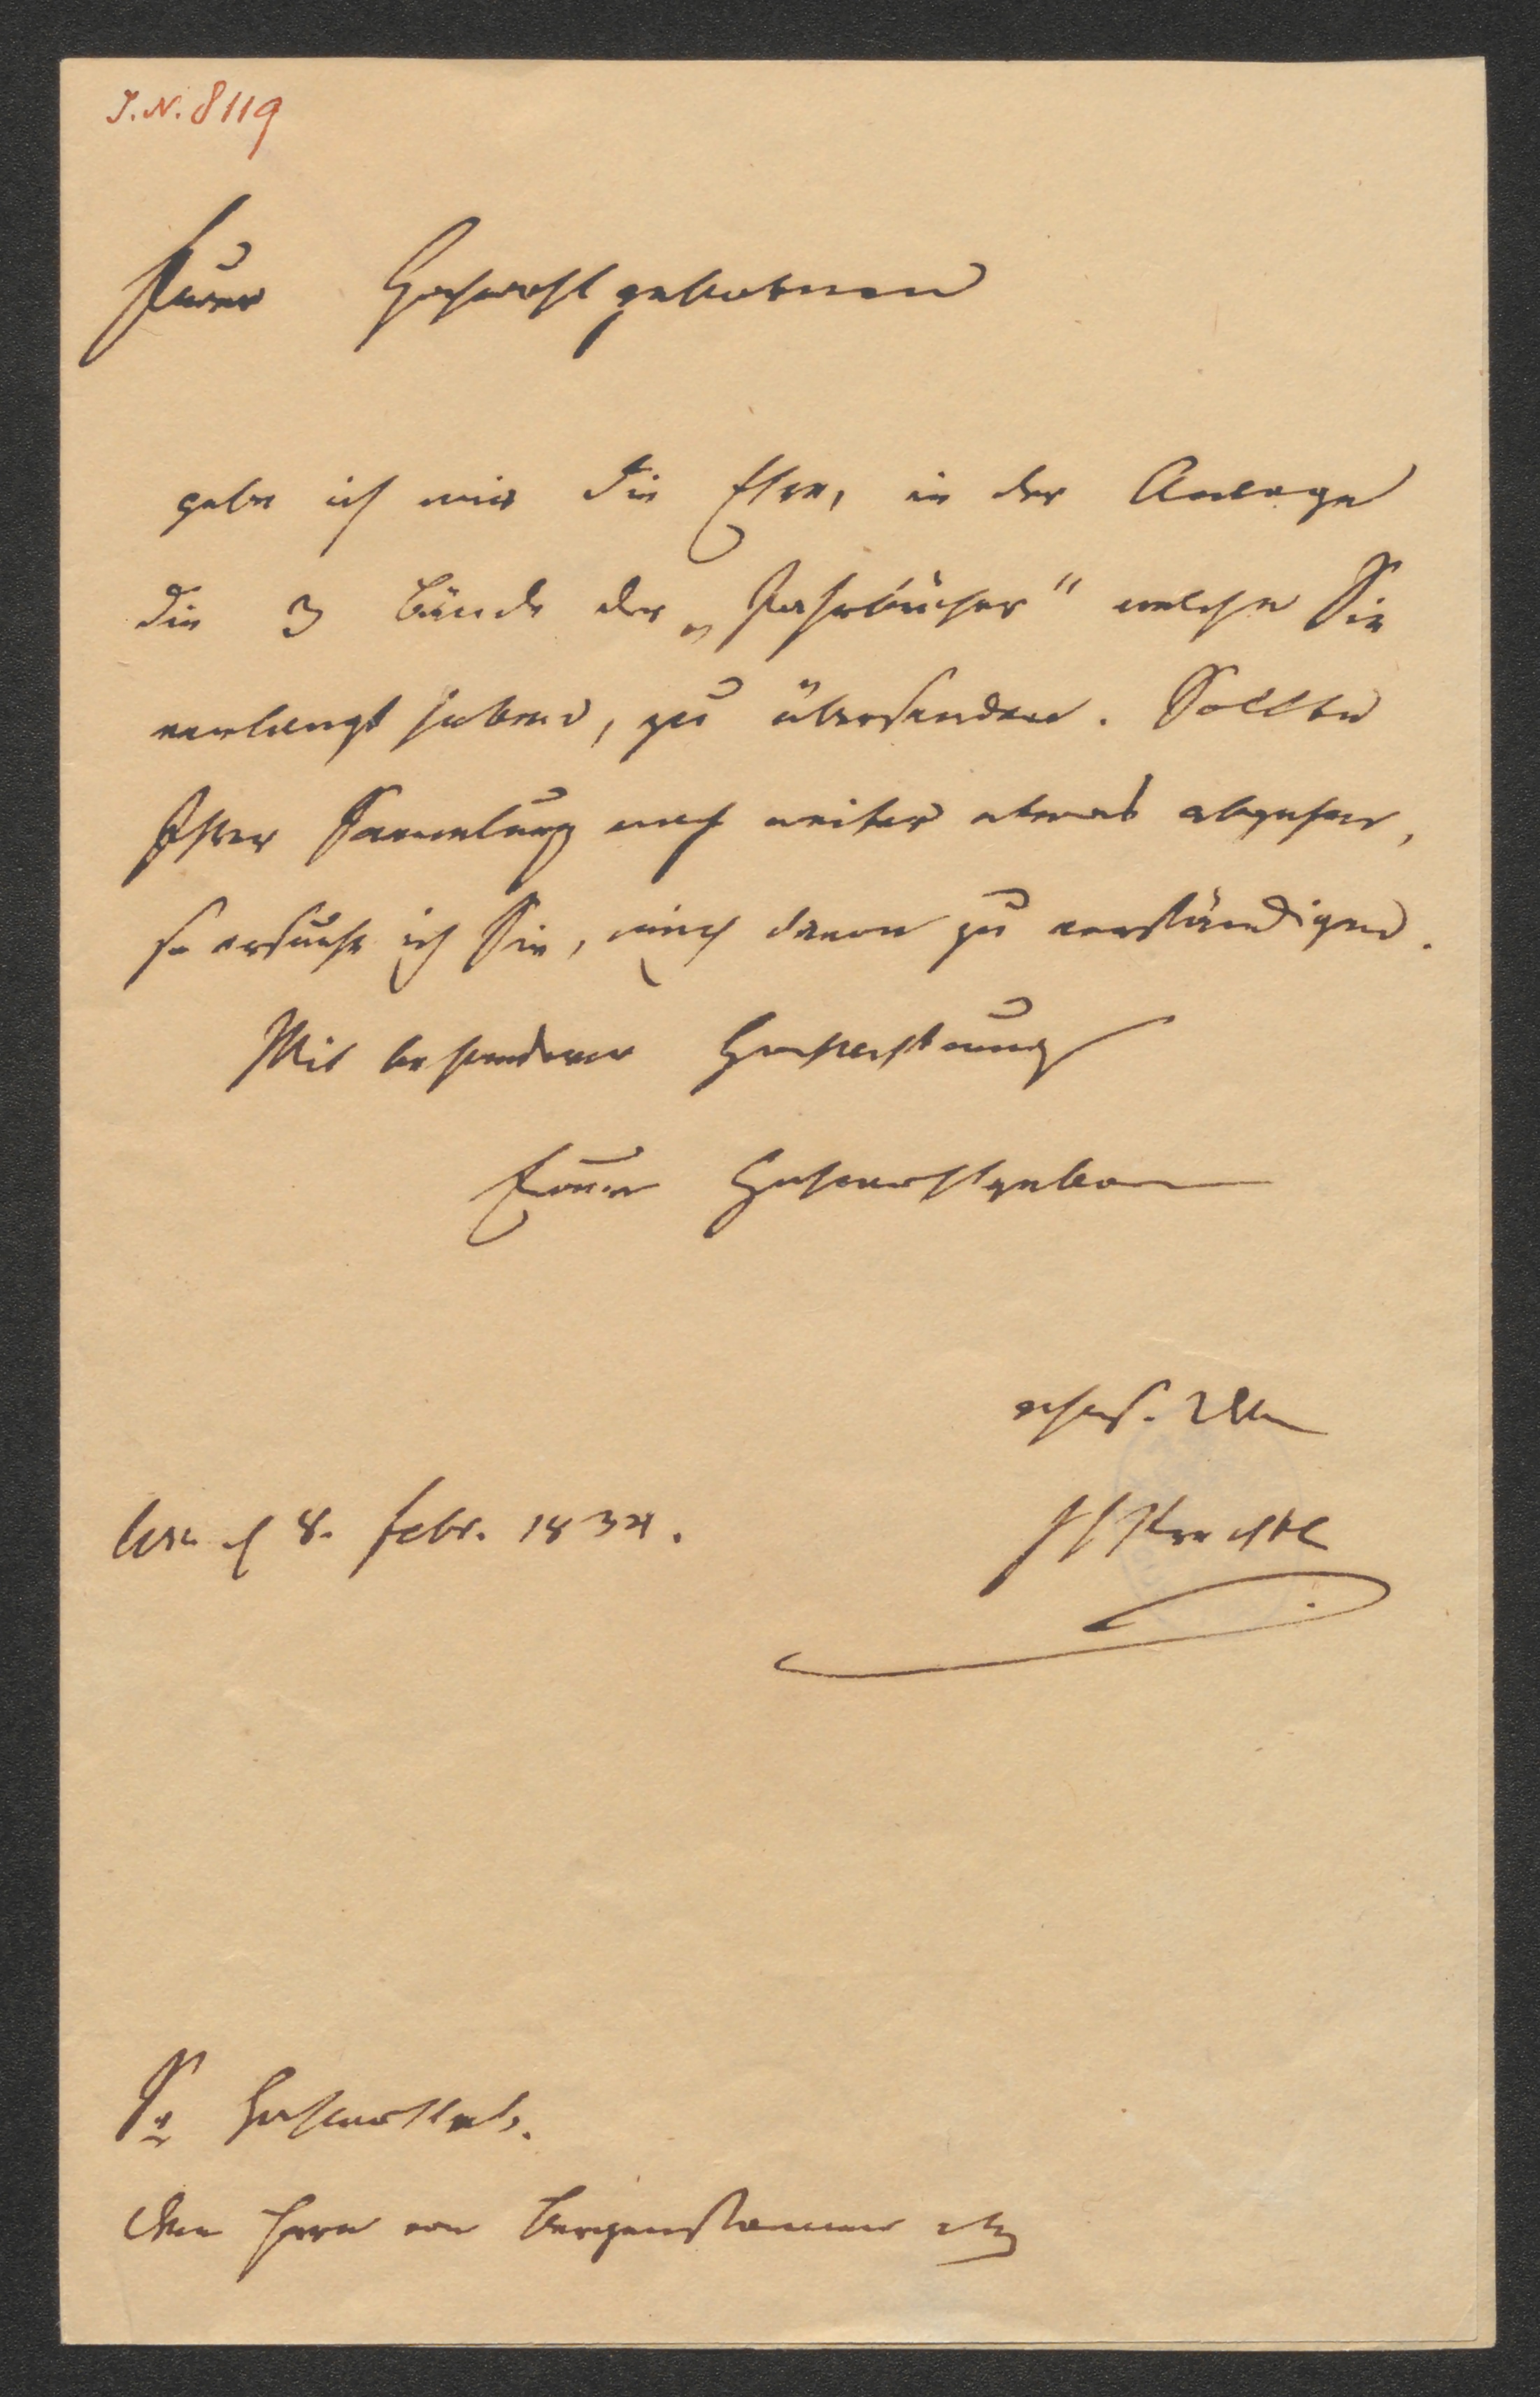 J.N. 8119
Euer Hochwohlgebornen
gebe ich mir die Ehre, in der Anlage
die 3 Bände der „Jahrbücher“ welche Sie
verlangt haben, zu übersenden. Sollte
Ihrer Sammlung noch weiter etwas abgehen,
so ersuche ich Sie, mich davon zu verständigen.
Mit besonderer Hochachtung
Euer Hochwohlgebor
Wien d 8. Febr. 1834.
JJPrechtl
Sr Hochwohlgeb.
Dem Herrn von Bergenstamm etc